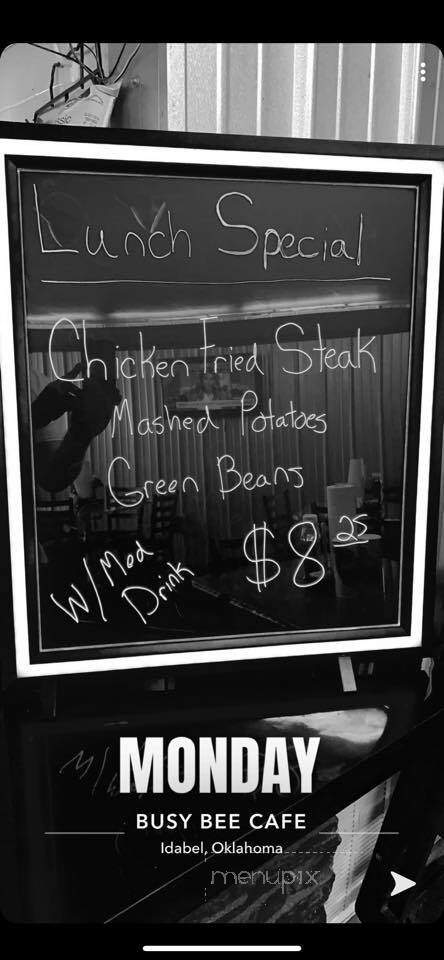 Lunch Special
Chicken Fried Steak
Mashed Potatoes
Green Beans
$8 25
W/ Med
Drink
MONDAY
BUSY BEE CAFE
Idabel, Oklahoma
menupix